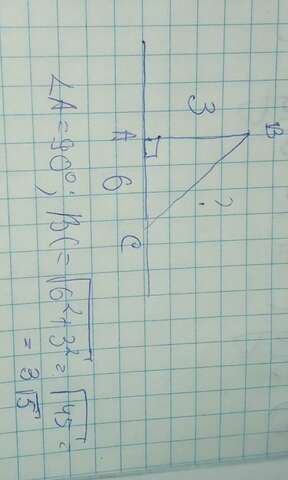 B
3
?
A
6
C
∠A = 90°; BC = √6²+3² = √45 =
= 3√5